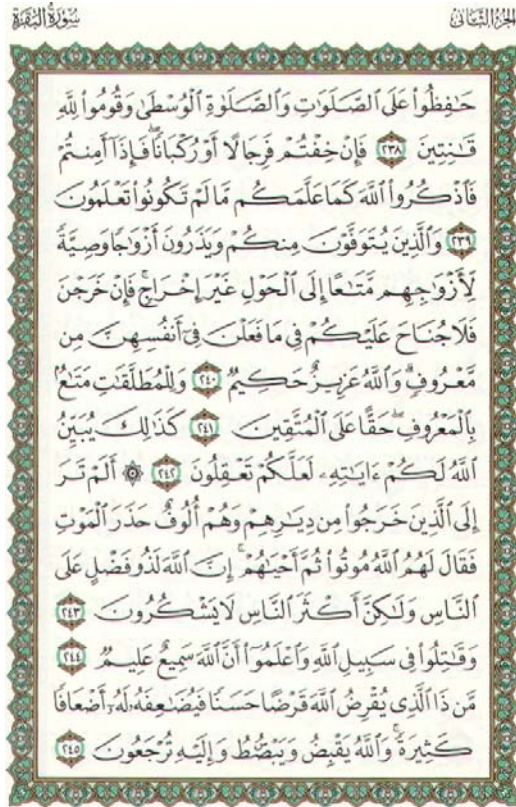 سُورَةُ البَقَرَةِ
الجُزْءُ الثَّانِي
حَٰفِظُوا۟ عَلَى ٱلصَّلَوَٰتِ وَٱلصَّلَوٰةِ ٱلْوُسْطَىٰ وَقُومُوا۟ لِلَّهِ
قَٰنِتِينَ ٢٣٨ فَإِنْ خِفْتُمْ فَرِجَالًا أَوْ رُكْبَانًا ۖ فَإِذَآ أَمِنتُمْ
فَٱذْكُرُوا۟ ٱللَّهَ كَمَا عَلَّمَكُم مَّا لَمْ تَكُونُوا۟ تَعْلَمُونَ
٢٣٩ وَٱلَّذِينَ يُتَوَفَّوْنَ مِنكُمْ وَيَذَرُونَ أَزْوَٰجًا وَصِيَّةً
لِّأَزْوَٰجِهِم مَّتَٰعًا إِلَى ٱلْحَوْلِ غَيْرَ إِخْرَاجٍ ۚ فَإِنْ خَرَجْنَ
فَلَا جُنَاحَ عَلَيْكُمْ فِى مَا فَعَلْنَ فِىٓ أَنفُسِهِنَّ مِن
مَّعْرُوفٍ ۗ وَٱللَّهُ عَزِيزٌ حَكِيمٌ ٢٤٠ وَلِلْمُطَلَّقَٰتِ مَتَٰعٌۢ
بِٱلْمَعْرُوفِ ۖ حَقًّا عَلَى ٱلْمُتَّقِينَ ٢٤١ كَذَٰلِكَ يُبَيِّنُ
ٱللَّهُ لَكُمْ ءَايَٰتِهِۦ لَعَلَّكُمْ تَعْقِلُونَ ٢٤٢ ۞ أَلَمْ تَرَ
إِلَى ٱلَّذِينَ خَرَجُوا۟ مِن دِيَٰرِهِمْ وَهُمْ أُلُوفٌ حَذَرَ ٱلْمَوْتِ
فَقَالَ لَهُمُ ٱللَّهُ مُوتُوا۟ ثُمَّ أَحْيَٰهُمْ ۚ إِنَّ ٱللَّهَ لَذُو فَضْلٍ عَلَى
ٱلنَّاسِ وَلَٰكِنَّ أَكْثَرَ ٱلنَّاسِ لَا يَشْكُرُونَ ٢٤٣
وَقَٰتِلُوا۟ فِى سَبِيلِ ٱللَّهِ وَٱعْلَمُوٓا۟ أَنَّ ٱللَّهَ سَمِيعٌ عَلِيمٌ ٢٤٤
مَّن ذَا ٱلَّذِى يُقْرِضُ ٱللَّهَ قَرْضًا حَسَنًا فَيُضَٰعِفَهُۥ لَهُۥٓ أَضْعَافًا
كَثِيرَةً ۚ وَٱللَّهُ يَقْبِضُ وَيَبْصُۜطُ وَإِلَيْهِ تُرْجَعُونَ ٢٤٥